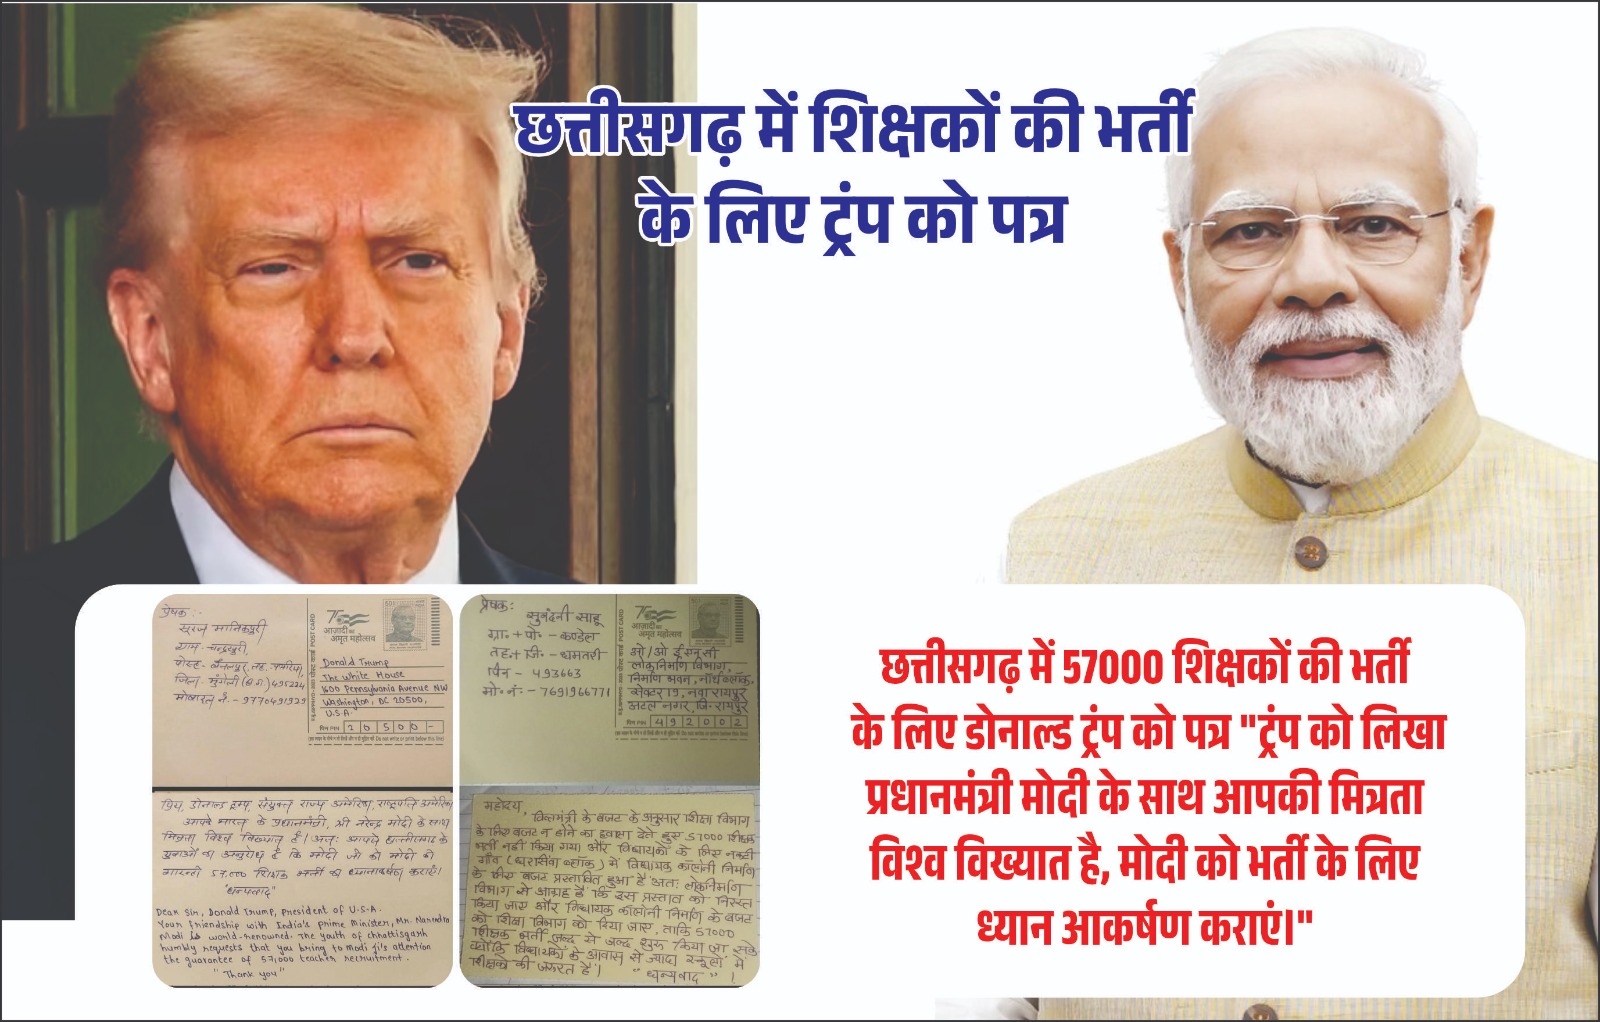 छत्तीसगढ़ में शिक्षकों की भर्ती
के लिए ट्रंप को पत्र
प्रेषक :-
सूरज मानिकपुरी
ग्राम - चन्द्रपुरी,
जिला - मुंगेली (छ.ग.) 495224
मोबाइल नं. - 9770491929
POST CARD
75
आज़ादी का
अमृत महोत्सव
Donald Trump
The White House
1600 Pennsylvania Avenue NW
Washington, DC 20500,
U.S.A.
पिन PIN 20500-
प्रिय, डोनाल्ड ट्रम्प, संयुक्त राज्य अमेरिका, राष्ट्रपति अमेरिका
आपके भारत के प्रधानमंत्री, श्री नरेन्द्र मोदी के साथ
मित्रता विश्व विख्यात है। अतः आपसे छत्तीसगढ़ के
युवाओं का अनुरोध है कि मोदी जी को मोदी की
गारण्टी 57,000 शिक्षक भर्ती का ध्यानाकर्षण कराएं।
"धन्यवाद"
Dean Sir, Donald Trump, president of U.S.A.
Your friendship with India's prime Minister, Mr. Narendra
Modi is world-renowned. The youth of chhattisgarh
humbly requests that you bring to Modi ji's attention
the guarantee of 57,000 teacher recruitment.
"Thank you"
प्रेषक:
सुनंदनी साहू
ग्रा.+पो. - कण्डेल
तह.+जि. - धमतरी
पिन - 493663
मो. नं. - 7691966771
POST CARD
75
आज़ादी का
अमृत महोत्सव
ओ/ओ ईएनसी
लोकनिर्माण विभाग,
निर्माण भवन, नॉर्थ ब्लॉक,
सेक्टर 19, नवा रायपुर
अटल नगर, जि. रायपुर
पिन PIN 492002
महोदय,
वित्तमंत्री के बजट के अनुसार शिक्षा विभाग
के लिए बजट न होने का हवाला देते हुए 57000 शिक्षक
भर्ती नहीं किया गया और विधायकों के लिए नकटी
गाँव (धरसींवा ब्लॉक) में विधायक कॉलोनी निर्माण
के लिए बजट प्रस्तावित हुआ है अतः लोकनिर्माण
विभाग से आग्रह है कि इस प्रस्ताव को निरस्त
किया जाए और विधायक कॉलोनी निर्माण के बजट
को शिक्षा विभाग को दिया जाए, ताकि 57000
शिक्षक भर्ती जल्द से जल्द शुरू किया जा सके
क्योंकि विधायकों के आवास से ज्यादा स्कूलों में
शिक्षकों की जरूरत है। "धन्यवाद"।
छत्तीसगढ़ में 57000 शिक्षकों की भर्ती
के लिए डोनाल्ड ट्रंप को पत्र "ट्रंप को लिखा
प्रधानमंत्री मोदी के साथ आपकी मित्रता
विश्व विख्यात है, मोदी को भर्ती के लिए
ध्यान आकर्षण कराएं।"